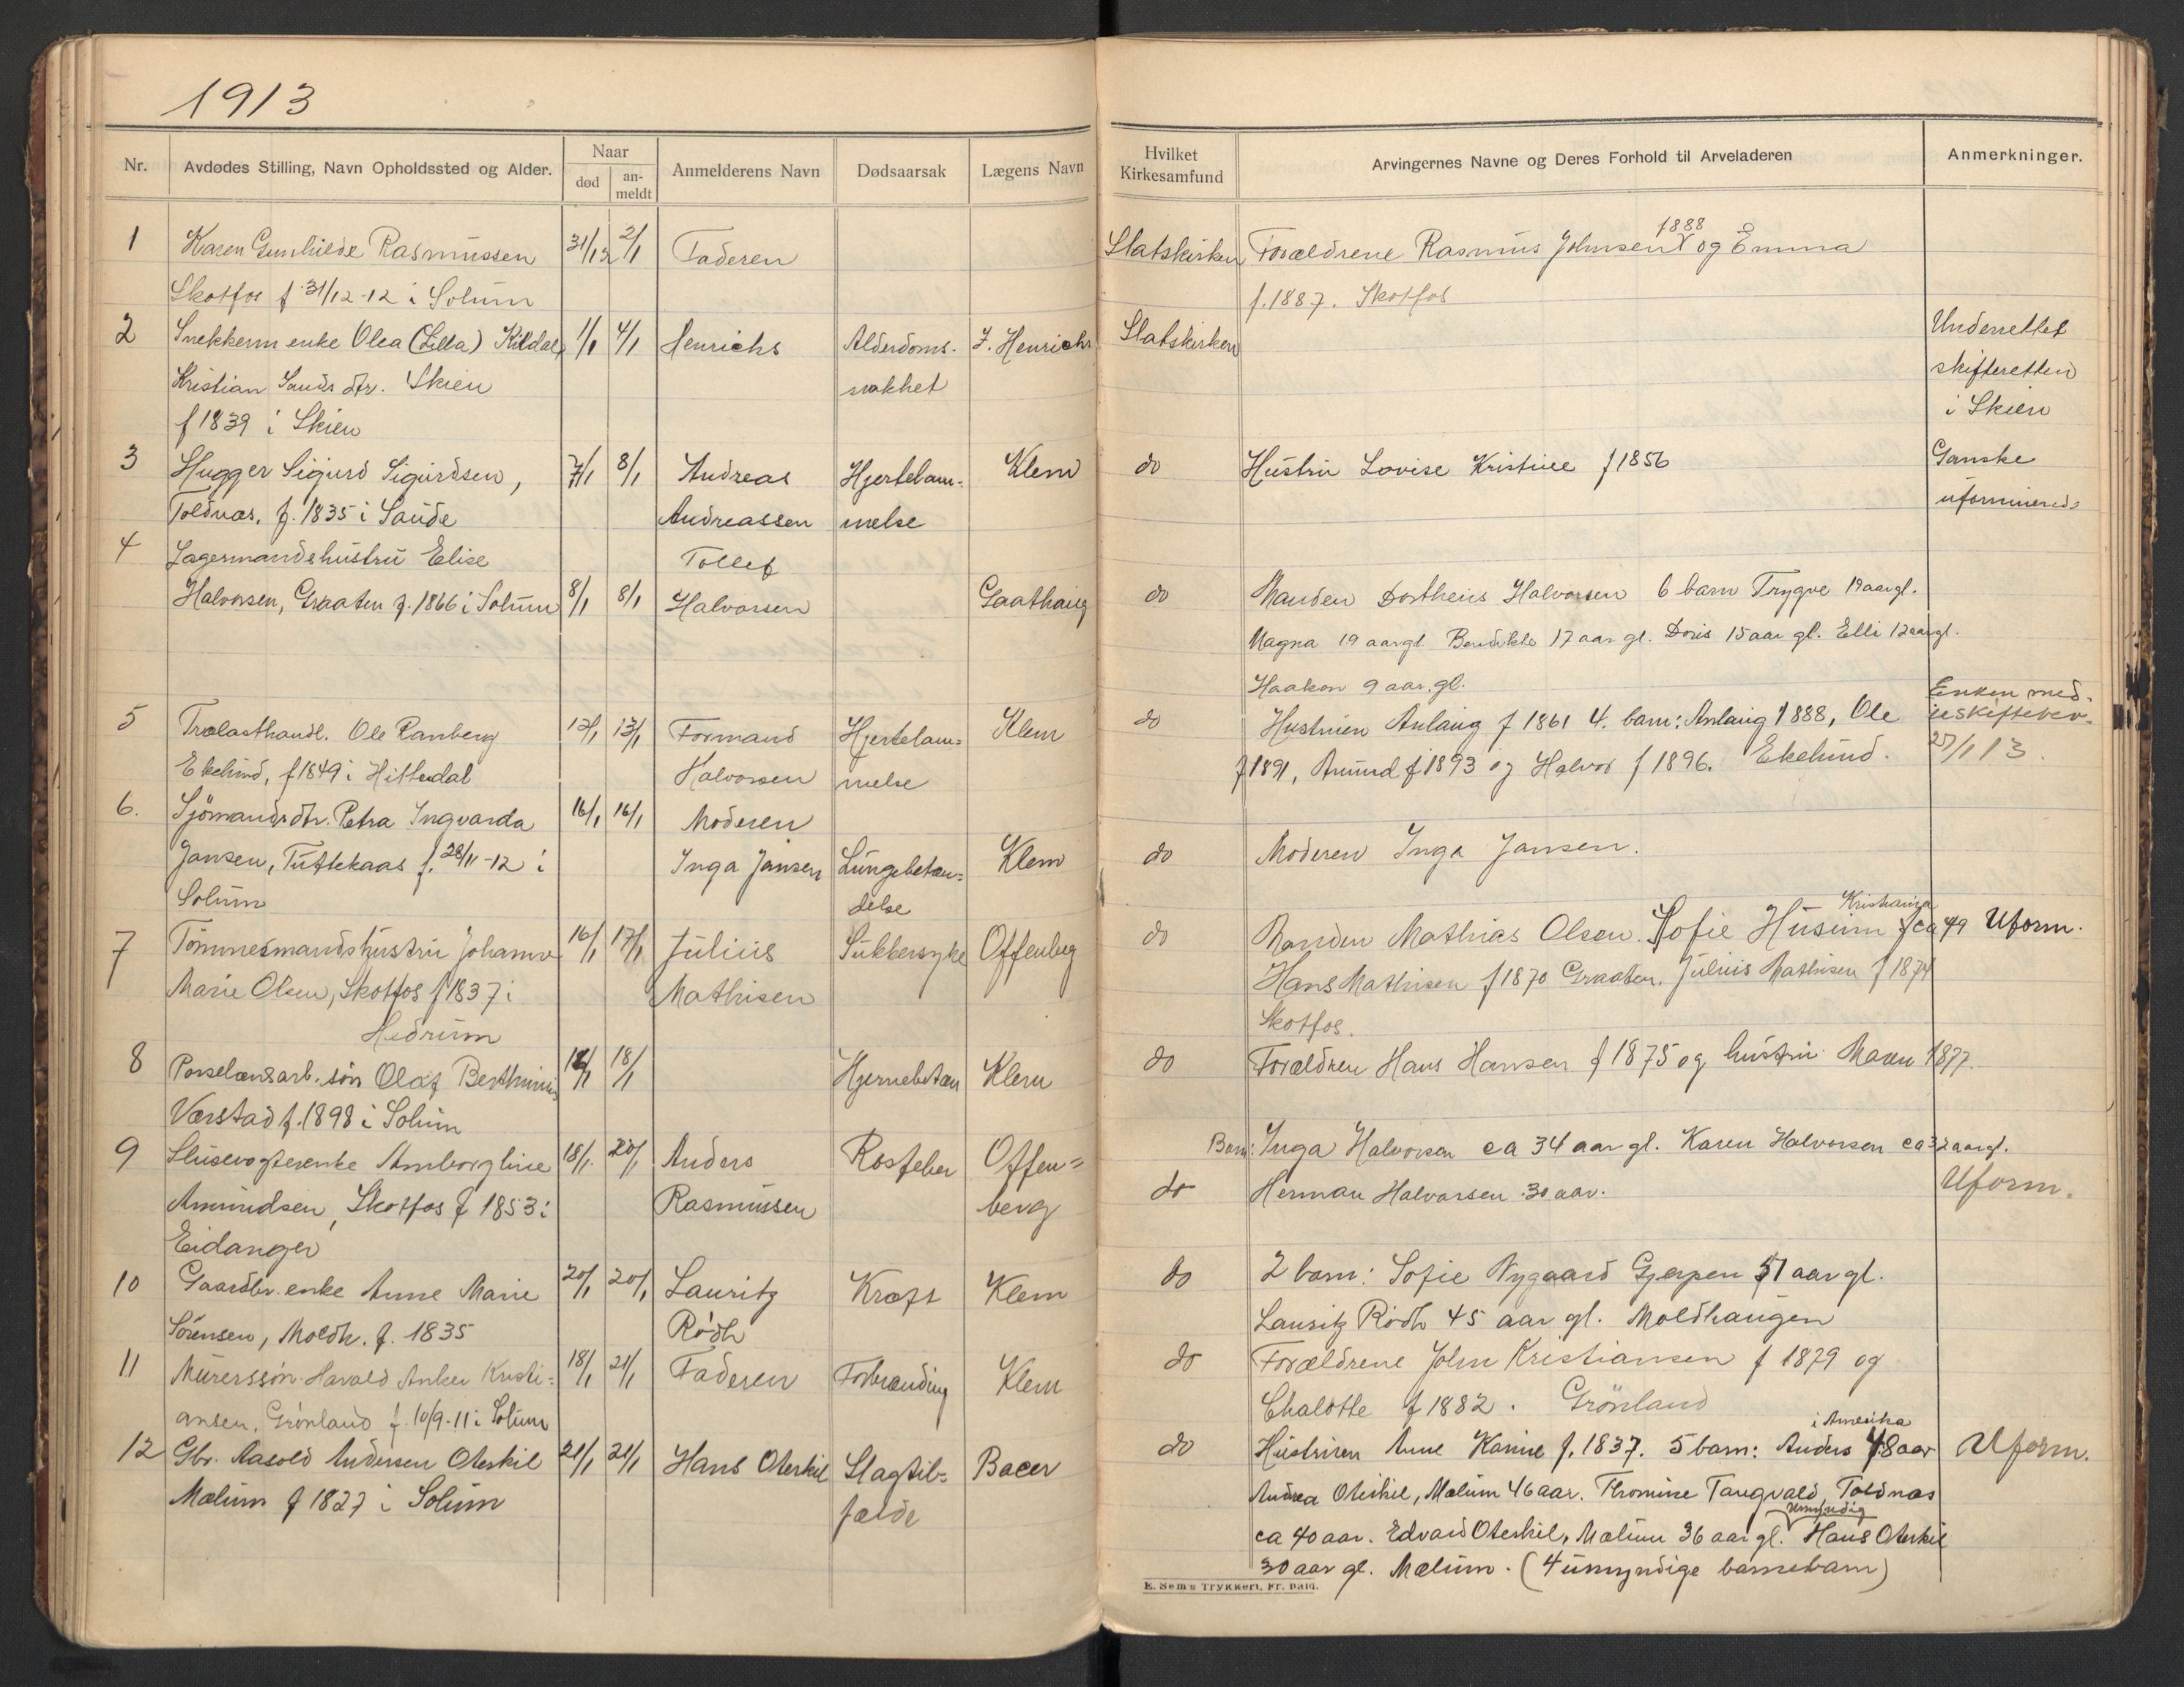 1913
Nr. Avdødes Stilling, Navn Opholdssted og Alder. Naar død an-meldt Anmelderens Navn Dødsaarsak Lægens Navn Hvilket Kirkesamfund Arvingernes Navne og Deres Forhold til Arveladeren Anmerkninger.
1 Karen Gunhilde Rasmussen 31/12 2/1 Faderen Statskirken Forældrene Rasmus Johnsen 1888 og Emma
Skotfos f 31/12-12 i Solum f. 1887. Skotfos
2 Snekkerm enke Olea (Lilla) Kildal 1/1 4/1 Henrichs Alderdoms- J. Henrichs Statskirken Underrettet
Kristian Sands dtr. Skien svakhet skifteretten
f 1839 i Skien i Skien
3 Hugger Sigurd Sigurdsen, 7/1 8/1 Andreas Hjertelam- Klem do Hustru Lovise Kristine f 1856 Ganske
Toldnæs. f. 1835 i Saude Andreassen melse uformuende
4 Lagermandshustru Elise Tollef
Halvorsen, Graaten f. 1866 i Solum 8/1 8/1 Halvorsen Gaathaug do Manden Dortheus Halvorsen 6 barn Trygve 19 aar gl.
Magna 19 aar gl. Bendikte 17 aar gl. Doris 15 aar gl. Elli 12 aar gl.
Haakon 9 aar gl.
5 Trælasthandl. Ole Ramberg 13/1 13/1 Formand Hjertelam- Klem do Hustruen Anlaug f 1861 4. barn: Anlaug 1888, Ole Enken med
Ekelund, f 1849 i Hitterdal Halvorsen melse f 1891, Amund f 1893 og Halvor f 1896. Ekelund. 27/1 13.
6. Sjömandsdtr. Petra Ingvarda 16/1 16/1 Moderen
Jansen, Tuftekaas f. 28/11-12 i Inga Jansen Lungebetæn- Klem do Moderen Inga Jansen.
Solum delse
7 Tömmermandshustru Johanne 16/1 17/1 Julius Sukkersyke Offenberg do Manden Mathias Olsen. Sofie Husum Kristiania f ca 49 Uform.
Marie Olsen, Skotfos f 1837 i Mathisen Hans Mathisen f 1870 Graaten. Julius Mathisen f 1874
Hedrum Skotfos.
8 Porselænsarb. søn Olaf Berthinius 18/1 18/1 Hjernebetæn Klem do Forældren Hans Hansen f 1875 og hustru Maren 1877.
Værstad f. 1898 i Solum
9 Slusevogterenke Amborgline 18/1. 20/1 Anders Rosfeber Offen- Barn: Inga Halvorsen ca 34 aar gl. Karen Halvorsen ca 32 aar gl.
Amundsen, Skotfos f 1853 i Rasmussen berg do Herman Halvorsen 30 aar. Uform.
Eidanger
10 Gaardbr. enke Anne Marie 20/1 20/1 Lauritz Kræft Klem do 2 barn: Sofie Nygaard Gjerpen 51 aar gl.
Sörensen, Moldh. f. 1835 Rödh Lauritz Rödh 45 aar gl. Moldhaugen
11 Murerssön Harald Anker Kristi- 18/1 21/1 Faderen Forbrænding Klem do Forældrene John Kristiansen f 1879 og
ansen, Grönland f. 10/9-11 i Solum Chalotte f 1882. Grönland
12 Gbr. Aasold Andersen Oterkil 21/1 21/1 Hans Oterkil Slagtil- Bacer do Hustruen Anne Karine f. 1837. 5 barn: Anders i Amerika 48 aar Uform.
Mælum f 1827 i Solum fælde Andrea Oterkil, Mælum 46 aar. Thomine Tangvald, Toldnæs
ca 40 aar. Edvard Oterkil, Mælum 36 aar gl. umyndig Hans Oterkil
30 aar gl. Mælum. (4 umyndige barnebarn)
E. Sems Trykkeri, Fr. hald.